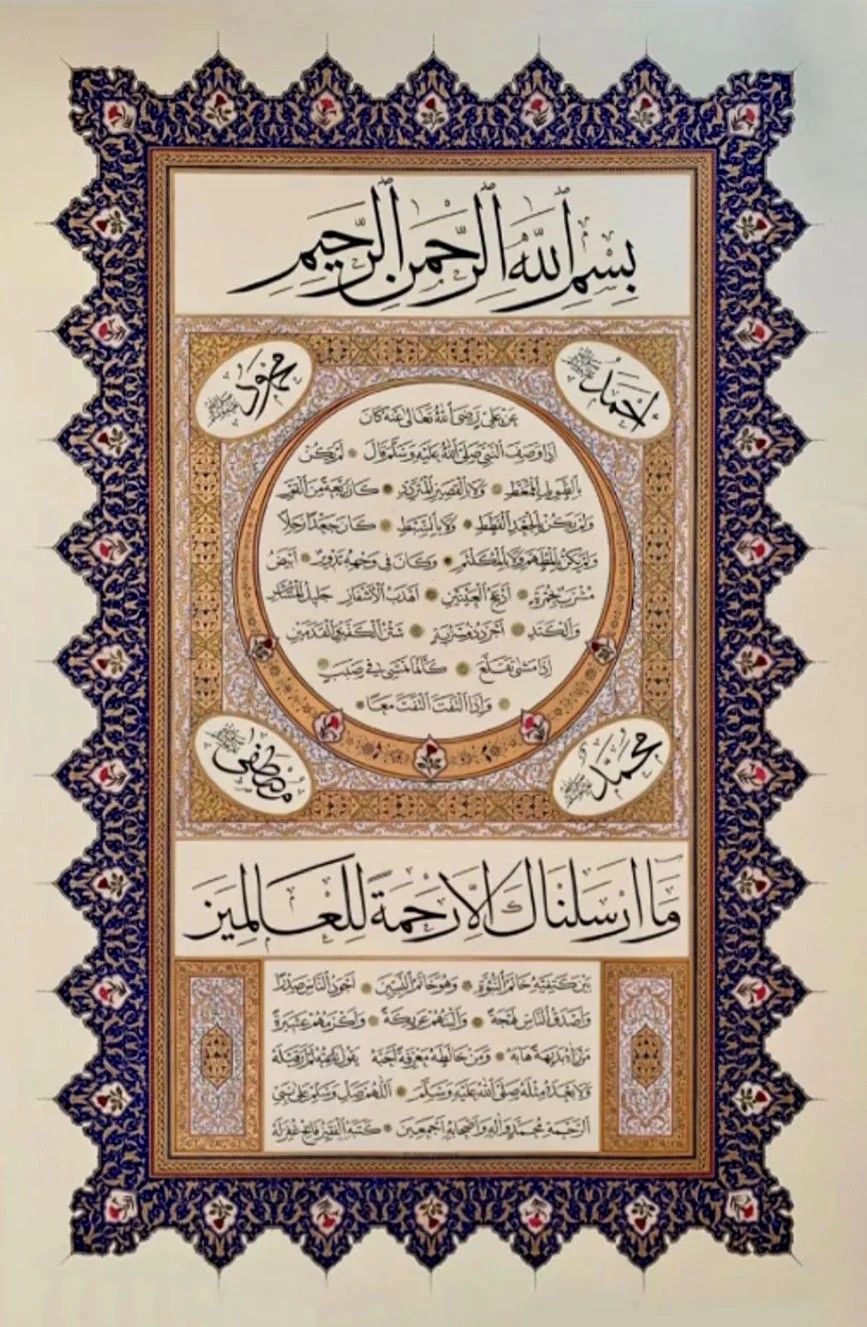 بِسْمِ اللّٰهِ الرَّحْمٰنِ الرَّحِيمِ
احمد
محمود
عَنْ عَلِيٍّ رَضِيَ اللهُ تَعَالٰى عَنْهُ كَانَ
اِذَا وَصَفَ النَّبِيَّ صَلَّى اللهُ عَلَيْهِ وَسَلَّمَ قَالَ ٭ لَمْ يَكُنْ
بِالطَّوِيلِ الْمُمَّغِطِ ٭ وَلَا بِالْقَصِيرِ الْمُتَرَدِّدِ ٭ كَانَ رَبْعَةً مِنَ الْقَوْمِ
وَلَمْ يَكُنْ بِالْجَعْدِ الْقَطَطِ ٭ وَلَا بِالسَّبْطِ ٭ كَانَ جَعْدًا رَجِلًا
وَلَمْ يَكُنْ بِالْمُطَهَّمِ وَلَا بِالْمُكَلْثَمِ ٭ وَكَانَ فِي وَجْهِهِ تَدْوِيرٌ ٭ اَبْيَضُ
مُشْرَبٌ بِحُمْرَةٍ ٭ اَدْعَجُ الْعَيْنَيْنِ ٭ اَهْدَبُ الْاَشْفَارِ جَلِيلُ الْمُشَاشِ
وَالْكَتَدِ ٭ اَجْرَدُ ذُو مَسْرُبَةٍ ٭ شَثْنُ الْكَفَّيْنِ وَالْقَدَمَيْنِ
اِذَا مَشٰى تَقَلَّعَ ٭ كَاَنَّمَا يَمْشِي فِي صَبَبٍ
٭ وَاِذَا الْتَفَتَ الْتَفَتَ مَعًا ٭
محمد
مصطفى
وَمَا اَرْسَلْنَاكَ اِلَّا رَحْمَةً لِلْعَالَمِينَ
بَيْنَ كَتِفَيْهِ خَاتَمُ النُّبُوَّةِ ٭ وَهُوَ خَاتَمُ النَّبِيِّينَ ٭ اَجْوَدُ النَّاسِ صَدْرًا
وَاَصْدَقُ النَّاسِ لَهْجَةً ٭ وَاَلْيَنُهُمْ عَرِيكَةً ٭ وَاَكْرَمُهُمْ عَشِيرَةً
مَنْ رَاٰهُ بَدِيهَةً هَابَهُ ٭ وَمَنْ خَالَطَهُ مَعْرِفَةً اَحَبَّهُ يَقُولُ نَاعِتُهُ لَمْ اَرَ قَبْلَهُ
وَلَا بَعْدَهُ مِثْلَهُ صَلَّى اللهُ عَلَيْهِ وَسَلَّمَ ٭ اَللّٰهُمَّ صَلِّ وَسَلِّمْ عَلٰى نَبِيِّ
الرَّحْمَةِ مُحَمَّدٍ وَاٰلِهِ وَاَصْحَابِهِ اَجْمَعِينَ ٭ كَتَبَهُ الْفَقِيرُ غُفِرَ لَهُ